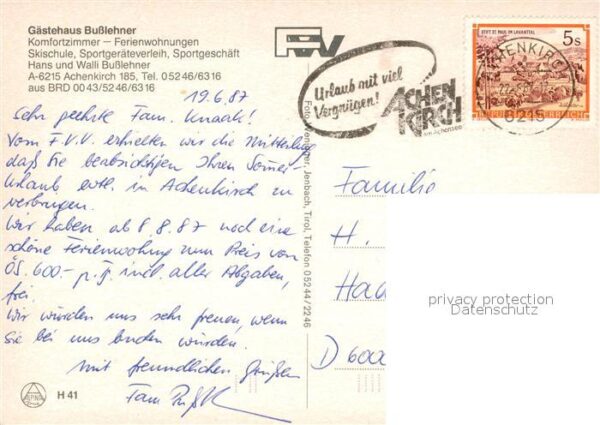 Gästehaus Bußlehner
Komfortzimmer – Ferienwohnungen
Skischule, Sportgeräteverleih, Sportgeschäft
Hans und Walli Bußlehner
A-6215 Achenkirch 185, Tel. 05246/6316
aus BRD 0043/5246/6316
19.6.87
Sehr geehrte Fam. Knaack!
Vom F.V.V. erhielten wir die Mitteilung
daß Sie beabsichtigen Ihren Sommer-
Urlaub evtl. in Achenkirch zu
verbringen.
Wir haben ab 8.8.87 noch eine
schöne Ferienwohng zum Preis von
ÖS. 600.- p.T. incl. aller Abgaben,
frei.
Wir würden uns sehr freuen, wenn
Sie bei uns buchen würden.
Mit freundlichen Grüßen
Fam
H 41
Jenbach, Tirol, Telefon 05244/2246
Urlaub mit viel
Vergnügen!
ACHEN
KIRCH
am Achensee
STIFT ST. PAUL IM LAVANTTAL
5s
REPUBLIK ÖSTERREICH
ACHENKIRCH
6215
Familie
H.
D 6000
privacy protection
Datenschutz